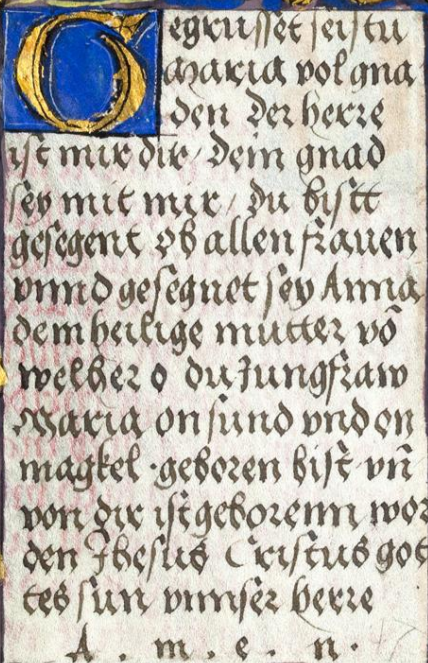 Gegrusset seistu
Maria vol gna
den Der herre
ist mit dir / Dein gnad
sey mit mir / Du bistt
gesegent ob allen frauen
vnnd gesegnet sey Anna
dem heilige mutter vō
welher o du Jungfraw
Maria on sund vnd on
magkel · geboren bist vn̄
von dir ist geborenn wor
den Jhesus Cristus got
tes sun vnnser herre
A . m . e . n ·